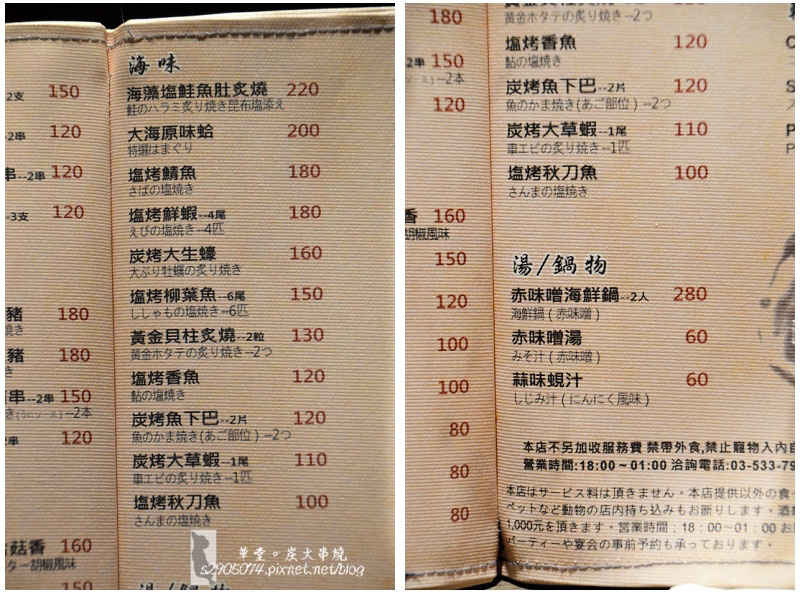 --2支 150
--2串 120
串--2串 120
--3支 120
豬 180
焼き
豬 180
串--2串 150
--2本
--2串 120
菇香 160
ター胡椒風味
150
海味
海藻塩鮭魚肚炙燒 220
鮭のハラミ炙り焼き昆布塩添え
大海原味蛤 200
特選はまぐり
塩烤鯖魚 180
さばの塩焼き
塩烤鮮蝦--4尾 180
えびの塩焼き--4匹
炭烤大生蠔 160
大ぶり牡蠣の炙り焼き
塩烤柳葉魚--6尾 150
ししゃもの塩焼き--6匹
黃金貝柱炙燒--2粒 130
黄金ホタテの炙り焼き--2つ
塩烤香魚 120
鮎の塩焼き
炭烤魚下巴--2片 120
魚のかま焼き(あご部位)--2つ
炭烤大草蝦--1尾 110
車エビの炙り焼き--1匹
塩烤秋刀魚 100
さんまの塩焼き
湯/鍋物
華堂。炭火串燒
s2905074.pixnet.net/blog
180
150
--2本
120
香 160
胡椒風味
150
120
100
100
80
80
80
黄金ホタテの炙り焼き--2つ
塩烤香魚 120
鮎の塩焼き
炭烤魚下巴--2片 120
魚のかま焼き(あご部位)--2つ
炭烤大草蝦--1尾 110
車エビの炙り焼き--1匹
塩烤秋刀魚 100
さんまの塩焼き
湯/鍋物
赤味噌海鮮鍋--2人 280
海鮮鍋(赤味噌)
赤味噌湯 60
みそ汁(赤味噌)
蒜味蜆汁 60
しじみ汁(にんにく風味)
本店不另加收服務費 禁帶外食,禁止寵物入內
營業時間:18:00~01:00 洽詢電話:03-533-79
本店はサービス料は頂きません。本店提供以外の食
ペットなど動物の店内持ち込みもお断りします。酒
1,000元を頂きます。営業時間：18：00~01：00 お
パーティーや宴会の事前予約も承っております。